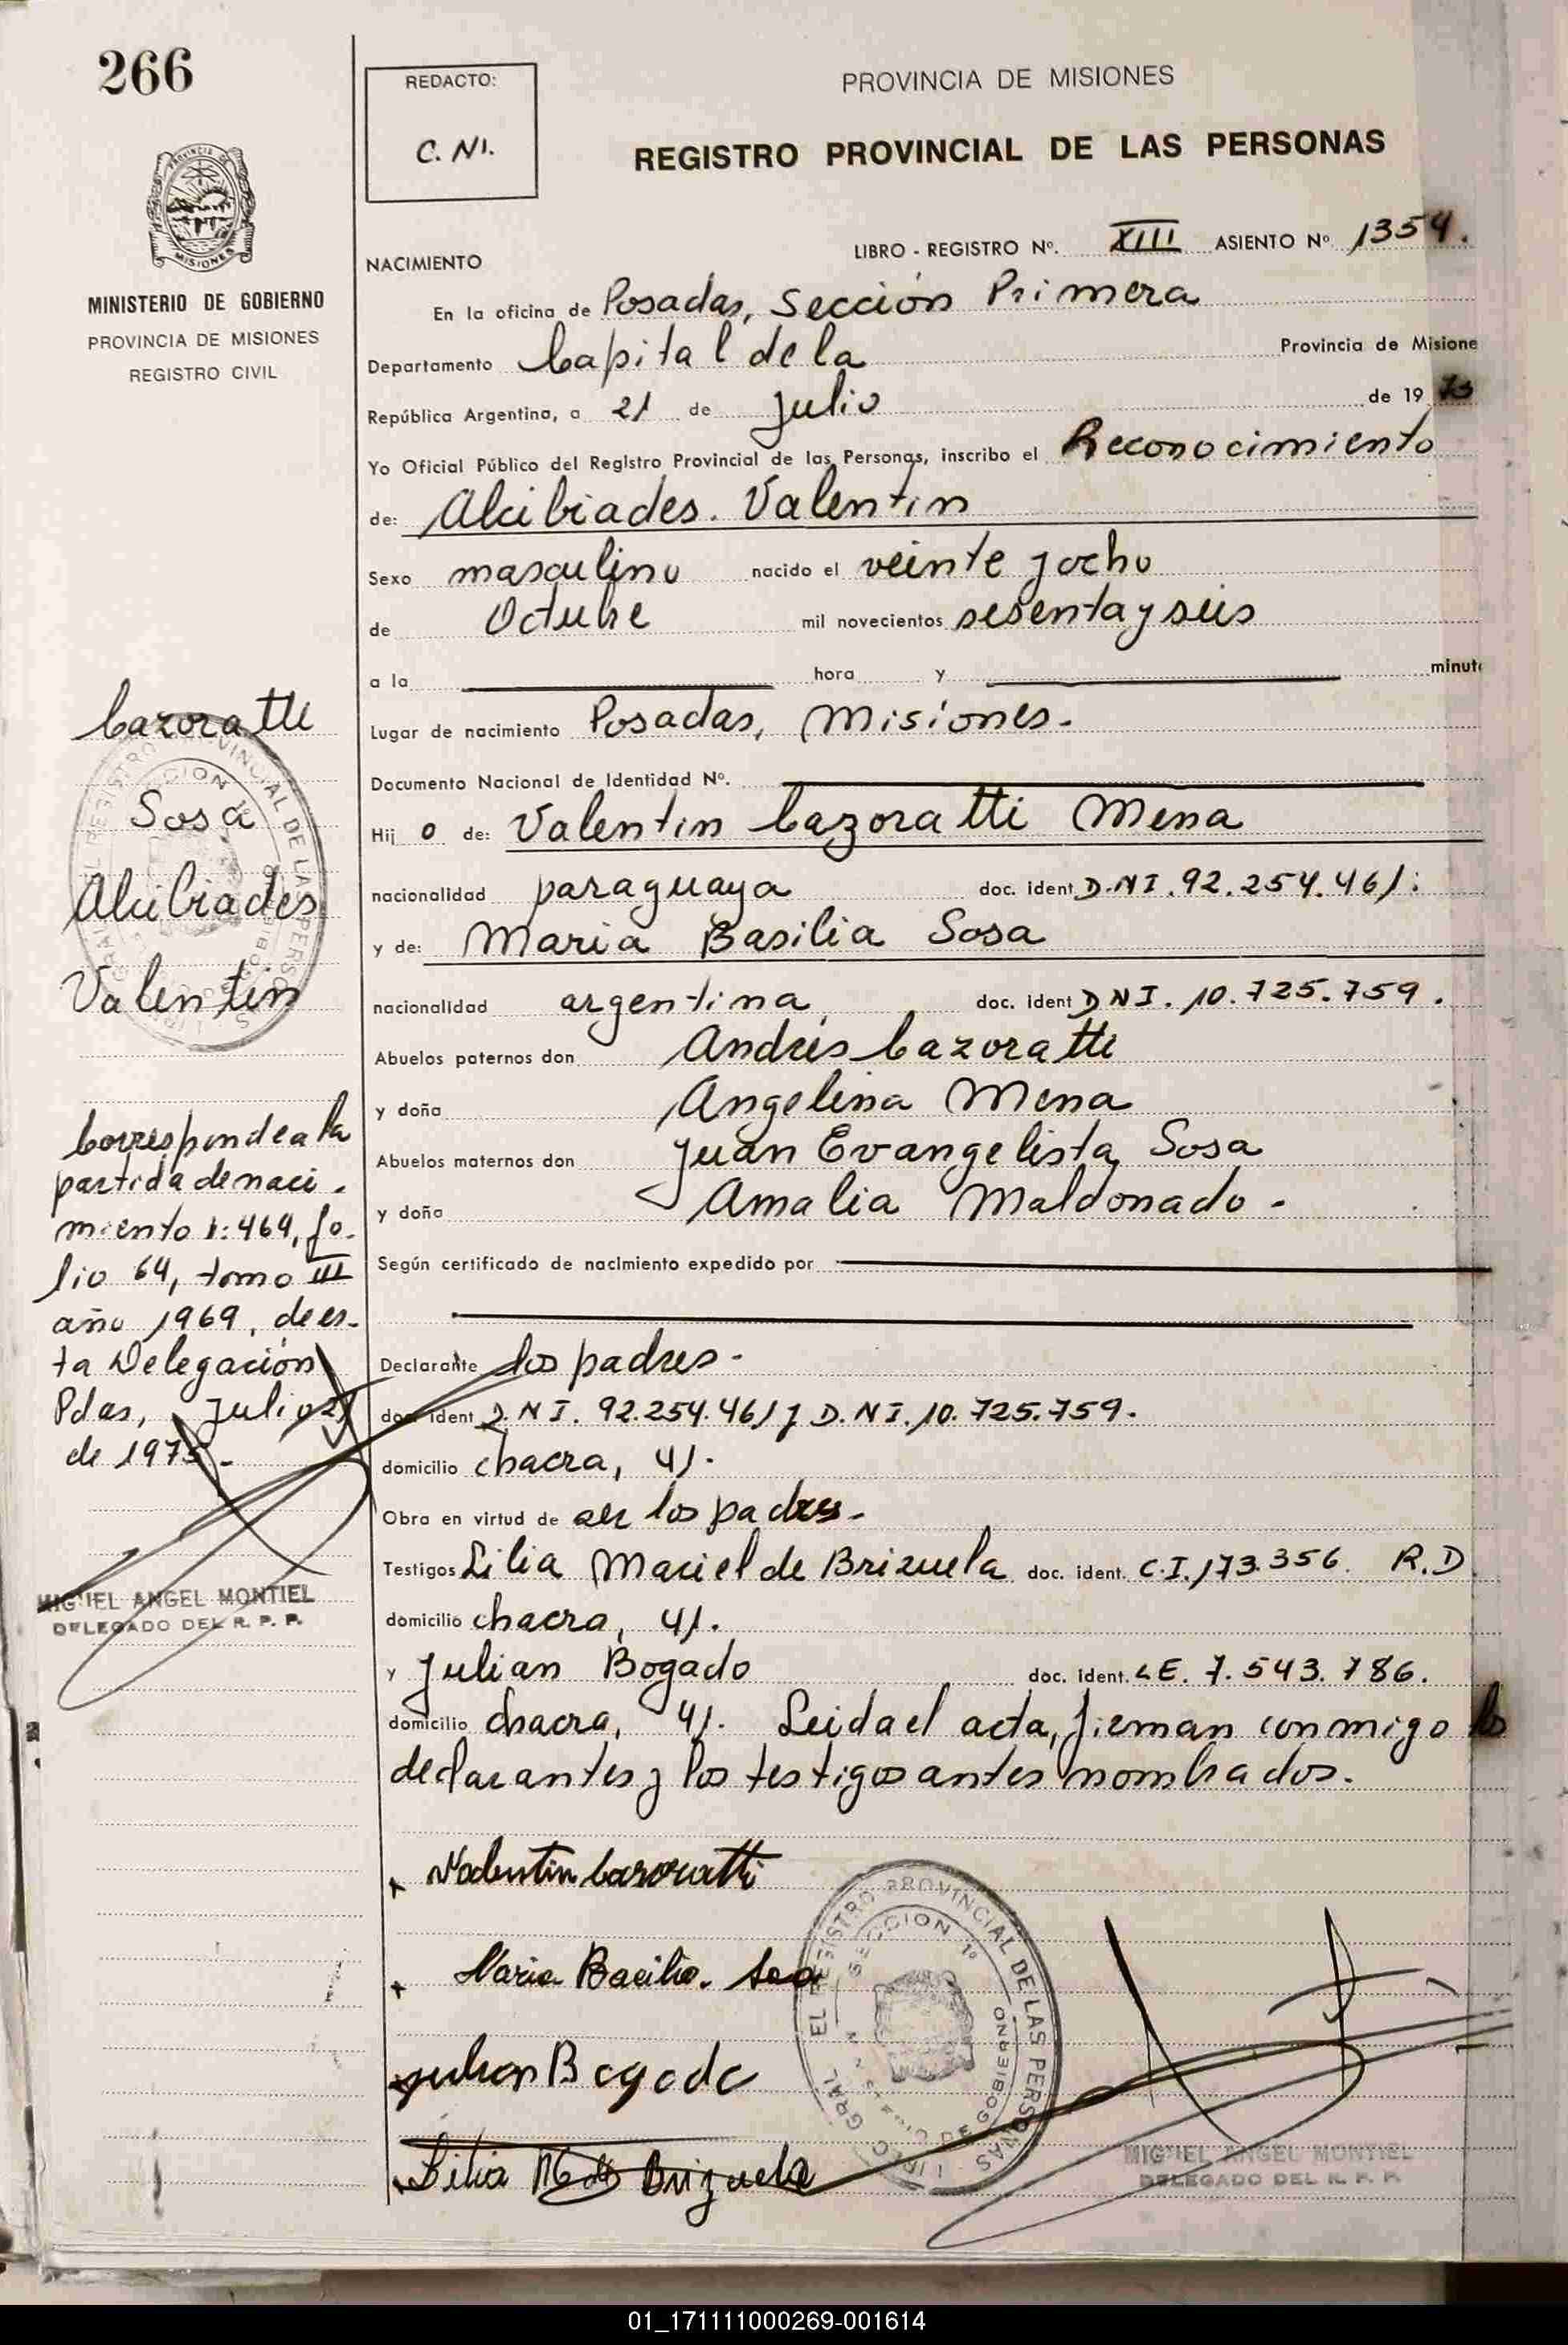 266
MINISTERIO DE GOBIERNO
PROVINCIA DE MISIONES
REGISTRO CIVIL
REDACTO:
C. NI.
PROVINCIA DE MISIONES
REGISTRO PROVINCIAL DE LAS PERSONAS
LIBRO - REGISTRO Nº. XIII ASIENTO Nº 1354.
NACIMIENTO
En la oficina de Posadas, Sección Primera
Departamento Capital de la Provincia de Misione
República Argentina, a 21 de Julio de 19
Yo Oficial Público del Registro Provincial de las Personas, inscribo el Reconocimiento
de: Alcibiades. Valentin
Sexo masculino nacido el veinte y ocho
de Octubre mil novecientos sesenta y seis
a la hora y minut
Lugar de nacimiento Posadas, Misiones.
Documento Nacional de Identidad Nº.
Hij o de: Valentin Cazoratti Mena
nacionalidad paraguaya doc. ident D.NI. 92.254.461:
y de: Maria Basilia Sosa
nacionalidad argentina, doc. ident DNI. 10.725.759.
Abuelos paternos don Andrés Cazoratti
y doña Angelina Mena
Abuelos maternos don Juan Evangelista Sosa
y doña Amalia Maldonado.
Según certificado de nacimiento expedido por
Declarante los padres.
doc. ident D.NI. 92.254.461 y D.NI. 10.725.759.
domicilio chacra, 41.
Obra en virtud de ser los padres.
Testigos Lilia Maciel de Brizuela doc. ident. C.I. 173.356. R.D
domicilio chacra, 41.
y Julian Bogado doc. ident. LE. 7.543.786.
domicilio chacra, 41. Leida el acta, firman conmigo los
declarantes y los testigos antes nombrados.
Cazoratti
Sosa
Alcibiades
Valentin
Corresponde a la
partida de naci.
miento 1:469, fo.
lio 64, tomo III
año 1969, de es.
ta Delegación
Pdas, Julio 21
de 1975.
MIGUEL ANGEL MONTIEL
DELEGADO DEL R. P. P.
Valentin Cazoratti
Maria Bacilia. Sosa
Julian Bogado
Lilia M de Brizuela
EL REGISTRO PROVINCIAL DE LAS PERSONAS
SECCION 1º
MIGUEL ANGEL MONTIEL
DELEGADO DEL R. P. P.
01_171111000269-001614